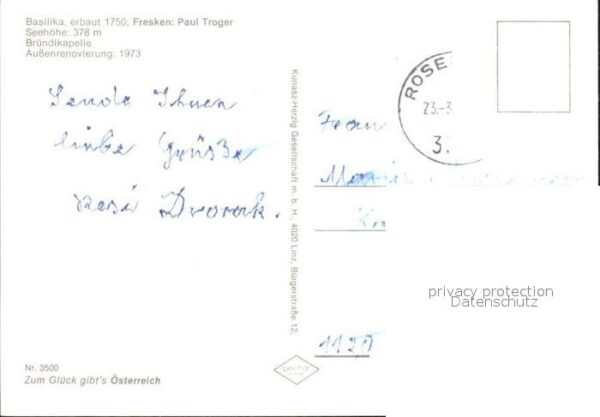 Basilika, erbaut 1750; Fresken: Paul Troger
Seehöhe: 378 m
Bründlkapelle
Außenrenovierung: 1973
Sende Ihnen
liebe Grüße
Resi Dvorak.
Kunasz-Herzig Gesellschaft m. b. H., 4020 Linz, Bürgerstraße 12.
ROSE
23.-3
3.
Frau
Maria
privacy protection
Datenschutz
1120
Nr. 3500
Zum Glück gibt's Österreich